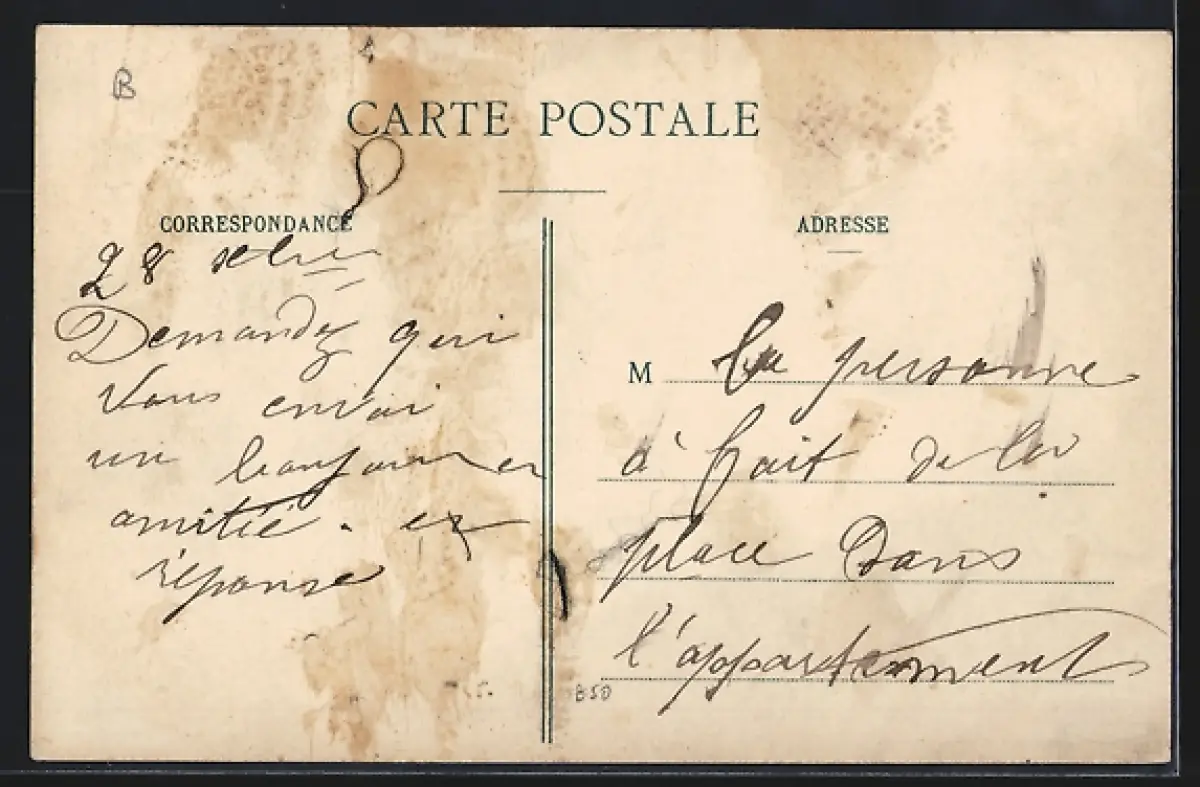 B
CARTE POSTALE
CORRESPONDANCE
28
Demandez qui
Vous envoi
un bonjour en
amitié. et
réponse
ADRESSE
M la personne
à fait de la
place Dans
l'appartement
B50